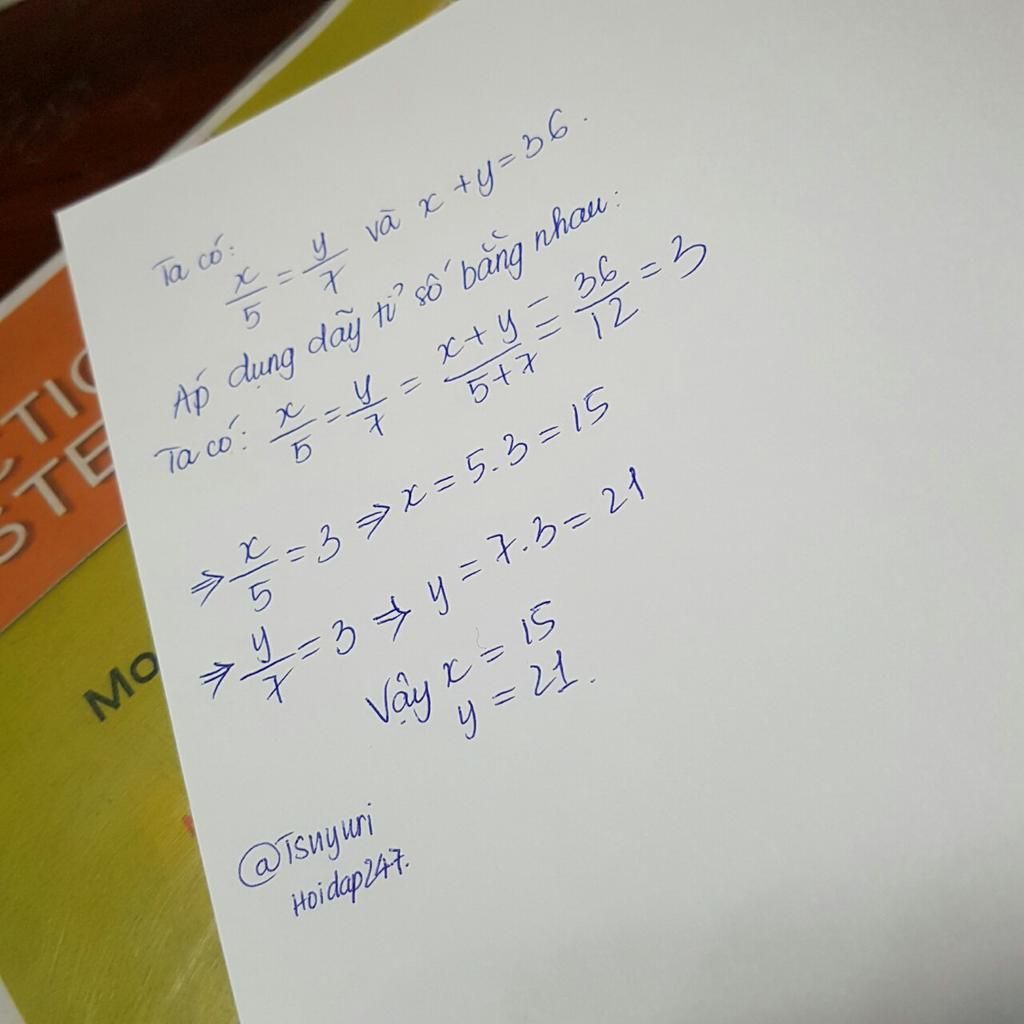 Ta có:
x/5 = y/7 và x + y = 36.
Áp dụng dãy tỉ số bằng nhau:
Ta có: x/5 = y/7 = (x + y)/(5+7) = 36/12 = 3
⇒ x/5 = 3 ⇒ x = 5.3 = 15
⇒ y/7 = 3 ⇒ y = 7.3 = 21
Vậy x = 15
y = 21.
@Tsuyuri
Hoidap247.
CTIC
STE
MO